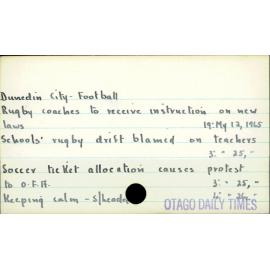 Dunedin City - Football
Rugby coaches to receive instruction on new
laws 19: My 12, 1965
Schools' rugby drift blamed on teachers
3: " 25, "
Soccer ticket allocation causes protest
to O.F.A. 3: " 25, "
Keeping calm - S/header 4: " 26, "
OTAGO DAILY TIMES